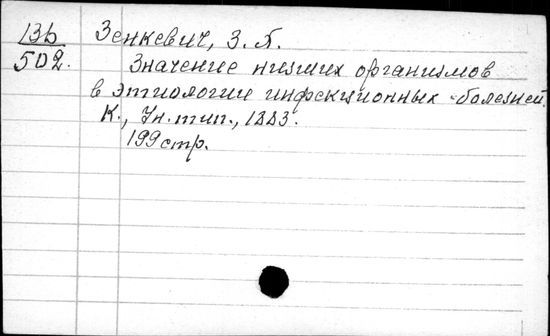 13b Зенкевич, З. Л.
502. Значение низших организмов
в этиологии инфекционных болезней.
К., Ун. тип., 1883.
199 стр.